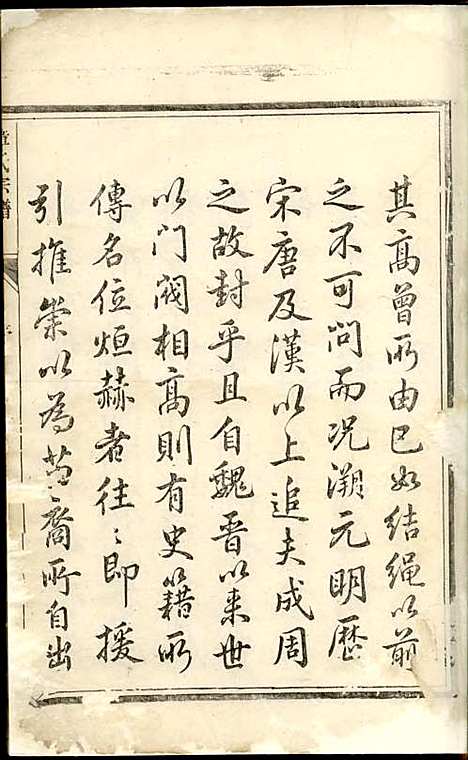 其高曾所由已如结绳以前
之不可問而况溯元明歷
宋唐及漢以上追夫成周
之故封乎且自魏晋以来世
以門閥相高則有史籍所
傳名位烜赫者往〻即援
引推崇以為苗裔所自出
氏宗譜